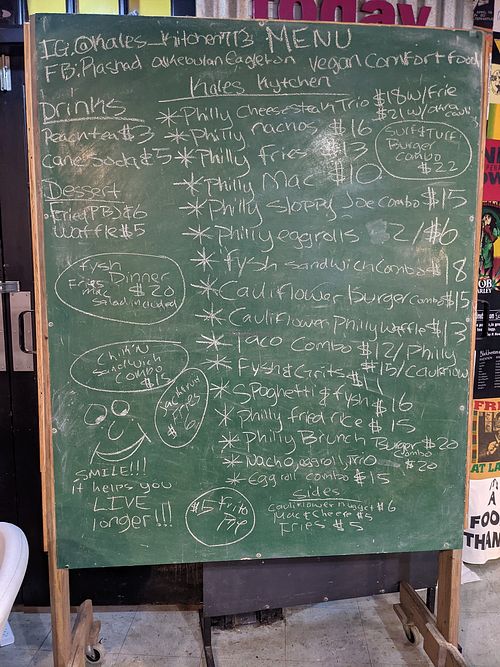 today
IG:@Kales_Kitchen713 MENU
FB:Rashad Vegan Comfort food
Kales Kytchen
Drinks
Peach tea $3
Cane soda $5
Dessert
Fried(PB)$6
Waffle $5
fysh Dinner
Fries $20
mac
salad included
Chik'n
Sandwich
Combo
$15
Jackfruit
Fries
$16
SMILE!!!
it helps you
LIVE
longer!!!
* Philly Cheesesteak Trio $18 w/Frie
$21 w/
* Philly nachos $16
* Philly fries $13
* Philly Mac $10
Surf & Turf
Burger
Combo
$22
* Philly Sloppy Joe Combo $15
* Philly eggrolls 2/$6
* fysh sandwich Combo $18
* Cauliflower Burger Combo $15
* Cauliflower Philly Waffle $13
* Taco Combo $12/Philly
$15/Cauliflow
* Fysh & Grits $11
* Spoghetti & fysh $16
* Philly fried rice $15
* Philly Brunch Burger $20
Combo
* Nacho, eggroll, Trio $20
* Egg roll combo $15
$5 Frito
Pie
Sides
Cauliflower nugget $6
Mac & Cheese $5
Fries $5
BOB
MARLEY
AT LA
A
FOO
THAN